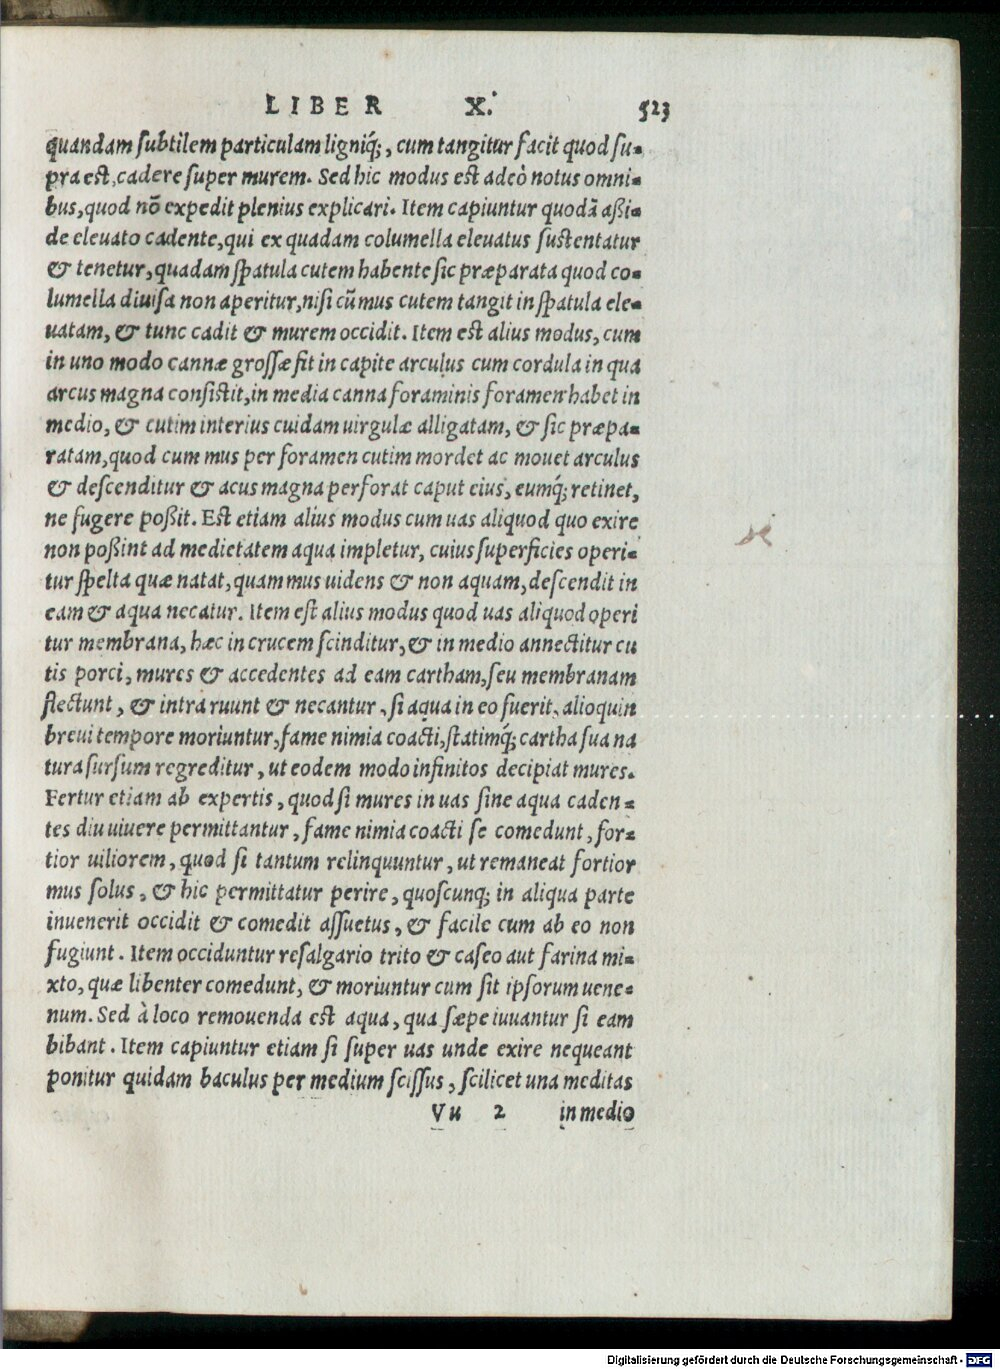 LIBER X. 523
quandam subtilem particulam ligniq́;, cum tangitur facit quod su-
pra est, cadere super murem. Sed hic modus est adeò notus omni-
bus, quod nõ expedit plenius explicari. Item capiuntur quodã aßi-
de eleuato cadente, qui ex quadam columella eleuatus sustentatur
& tenetur, quadam spatula cutem habente sic præparata quod co-
lumella diuisa non aperitur, nisi cũ mus cutem tangit in spatula ele-
uatam, & tunc cadit & murem occidit. Item est alius modus, cum
in uno modo cannæ grossæ fit in capite arculus cum cordula in qua
arcus magna consistit, in media canna foraminis foramen habet in
medio, & cutim interius cuidam uirgulæ alligatam, & sic præpa-
ratam, quod cum mus per foramen cutim mordet ac mouet arculus
& descenditur & acus magna perforat caput eius, eumq́; retinet,
ne fugere poßit. Est etiam alius modus cum uas aliquod quo exire
non poßint ad medietatem aqua impletur, cuius superficies operi-
tur spelta quæ natat, quam mus uidens & non aquam, descendit in
eam & aqua necatur. Item est alius modus quod uas aliquod operi
tur membrana, hæc in crucem scinditur, & in medio annectitur cu
tis porci, mures & accedentes ad eam cartham, seu membranam
flectunt, & intra ruunt & necantur, si aqua in eo fuerit, alioquin
breui tempore moriuntur, fame nimia coacti, statimq́; cartha sua na
tura sursum regreditur, ut eodem modo infinitos decipiat mures.
Fertur etiam ab expertis, quod si mures in uas sine aqua caden-
tes diu uiuere permittantur, fame nimia coacti se comedunt, for-
tior uiliorem, quod si tantum relinquuntur, ut remaneat fortior
mus solus, & hic permittatur perire, quoscunq; in aliqua parte
inuenerit occidit & comedit assuetus, & facile cum ab eo non
fugiunt. Item occiduntur resalgario trito & caseo aut farina mi-
xto, quæ libenter comedunt, & moriuntur cum sit ipsorum uene-
num. Sed à loco remouenda est aqua, qua sæpe iuuantur si eam
bibant. Item capiuntur etiam si super uas unde exire nequeant
ponitur quidam baculus per medium scissus, scilicet una meditas
Vu 2 in medio
Digitalisierung gefördert durch die Deutsche Forschungsgemeinschaft - DFG